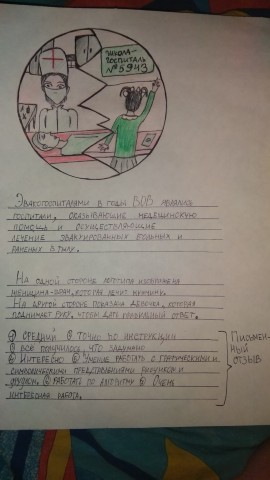 ШКОЛА-
ГОСПИТАЛЬ
№5943
Эвакогоспиталями в годы ВОВ являлись
госпитали, оказывающие медецинскую
помощь и осуществляющие
лечение эвакуированных больных и
раненых в тылу.
На одной стороне логотипа изображена
женщина-врач, которая лечит раненых.
На другой стороне показана девочка, которая
поднимает руку, чтобы дать правильный ответ.
① Средний ② Точно по инструкции
③ Всё получилось, что задумано
④ Интересно ⑤ Умение работать с графическими и
символическими представлениями рисунков и
⑥ Работать по алгоритму ⑥ Очень
интересная работа.
Письмен-
ный
отзыв